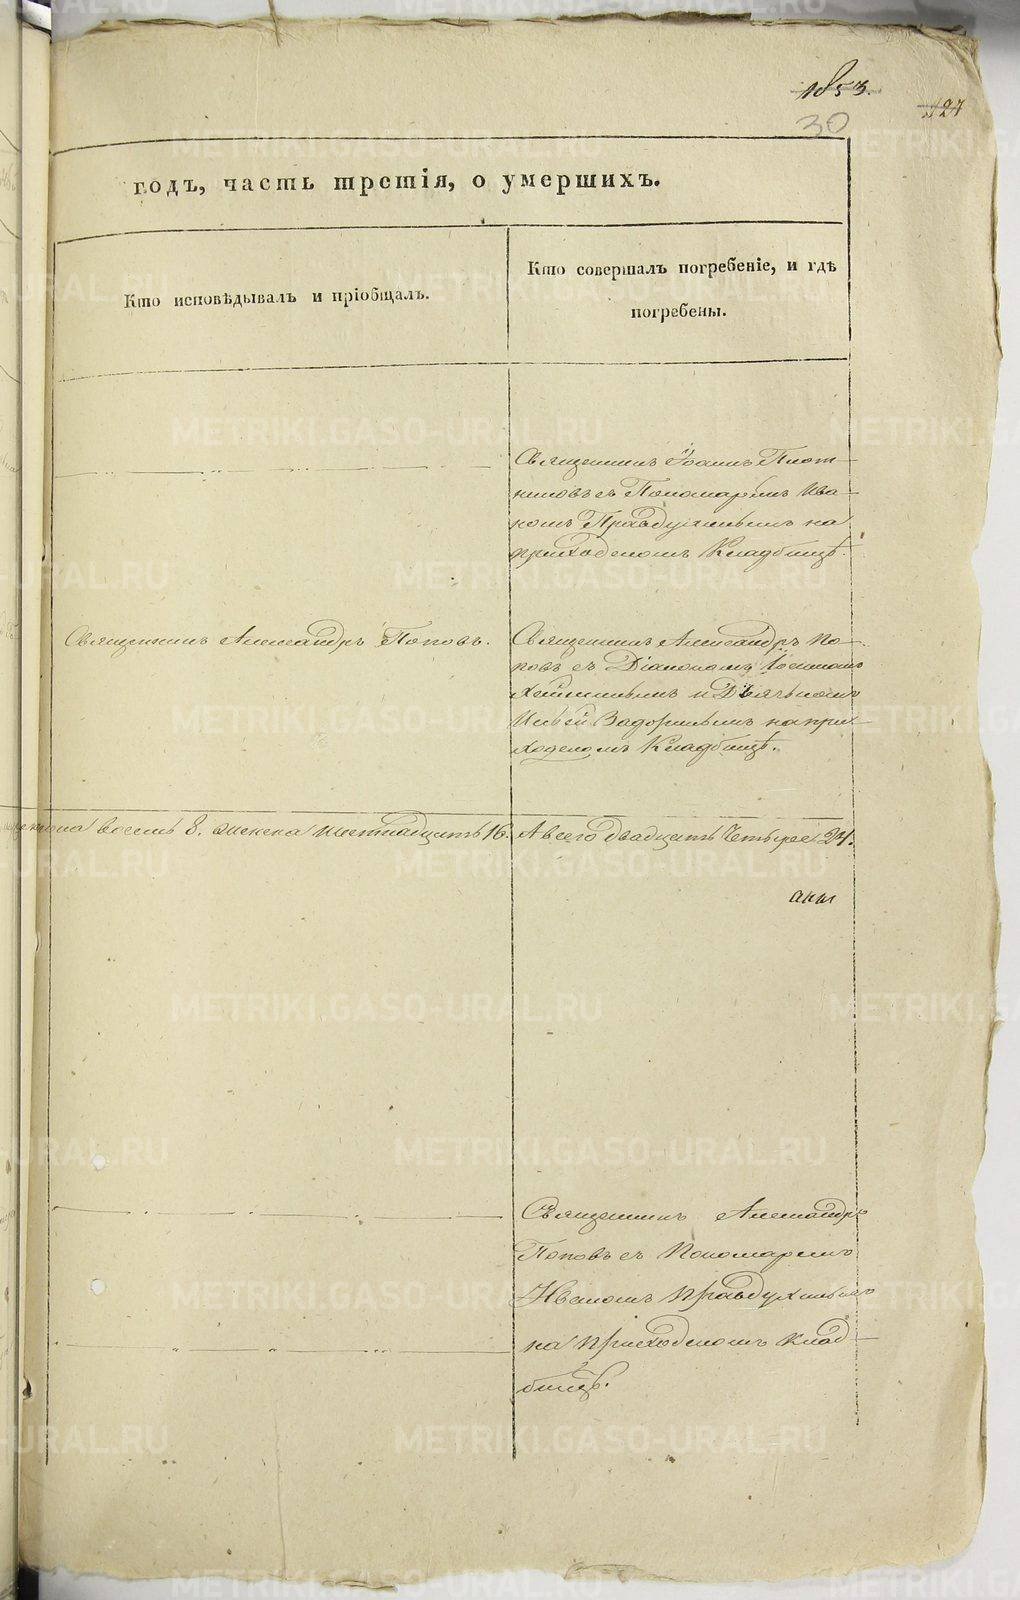 1853.
127
30
годъ, часть третія, о умершихъ.
Кто исповѣдывалъ и пріобщалъ.
Кто совершалъ погребеніе, и гдѣ
погребены.
Священникъ Іоаннъ Плот-
никовъ съ Пономаремъ Ива-
номъ Правдухинымъ на
приходскомъ Кладбищѣ.
Священникъ Александръ Поповъ.
Священникъ Александръ По-
повъ съ Діакономъ
и Дьячкомъ
Задоринымъ на при-
ходскомъ Кладбищѣ.
пола восемь 8. женска шестнадцать 16. А всего двадцать Четыре 24.
Священникъ Александръ
Поповъ съ Пономаремъ
Иваномъ Правдухинымъ
на приходскомъ клад-
бищѣ.
METRIKI.GASO-URAL.RU